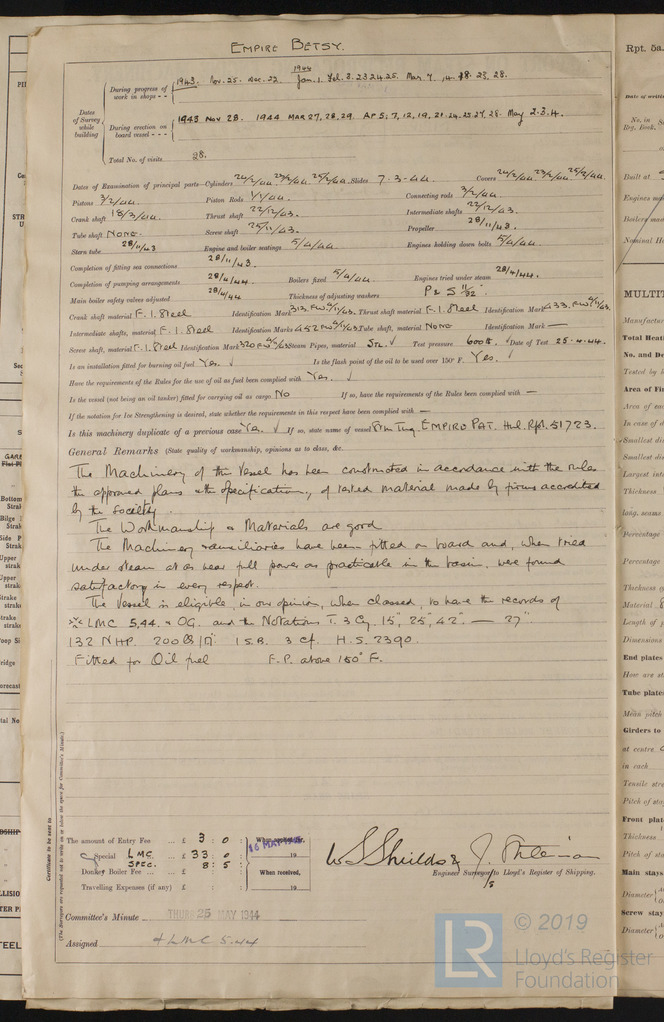 EMPIRE BETSY.
Rpt. 5a.
Dates of Survey while building
During progress of work in shops - -
1943. Nov. 25. Dec. 22. 1944 Jan. 1. Feb. 3. 23 24. 25. Mar 7. 14. 18. 23. 28.
During erection on board vessel - - -
1943 Nov 28. 1944 MAR 27, 28. 29. AP 5; 7, 12, 19, 21. 24. 25 27. 28. May 2. 3. 4.
Total No. of visits 28.
Dates of Examination of principal parts—Cylinders 24/2/44. 23/2/44. 25/2/44. Slides 7-3-44. Covers 24/2/44. 23/2/44. 25/2/44.
Pistons 3/2/44. Piston Rods 1/1/44. Connecting rods 3/2/44.
Crank shaft 18/3/44. Thrust shaft 22/12/43. Intermediate shafts 22/12/43.
Tube shaft NONE. Screw shaft 25/11/43. Propeller 28/11/43.
Stern tube 28/11/43 Engine and boiler seatings 5/4/44. Engines holding down bolts 5/4/44.
Completion of fitting sea connections 28/11/43.
Completion of pumping arrangements 28/4/44. Boilers fixed 5/4/44. Engines tried under steam 28/4/44.
Main boiler safety valves adjusted 28/4/44 Thickness of adjusting washers P & S 11/32".
Crank shaft material F. I. Steel Identification Mark Thrust shaft material F. I. Steel Identification Mark
Intermediate shafts, material F. I. Steel Identification Marks Tube shaft, material None Identification Mark —
Screw shaft, material F. I. Steel Identification Mark Steam Pipes, material Test pressure 600 lb. ✓ Date of Test 25-4-44.
Is an installation fitted for burning oil fuel Yes. ✓ Is the flash point of the oil to be used over 150° F. Yes. ✓
Have the requirements of the Rules for the use of oil as fuel been complied with Yes. ✓
Is the vessel (not being an oil tanker) fitted for carrying oil as cargo No If so, have the requirements of the Rules been complied with —
If the notation for Ice Strengthening is desired, state whether the requirements in this respect have been complied with —
Is this machinery duplicate of a previous case Yes. ✓ If so, state name of vessel EMPIRE PAT. Hul. Rpt. 51723.
General Remarks (State quality of workmanship, opinions as to class, &c.
The Machinery of this Vessel has been constructed in accordance with the rules
the approved plans & the specification, of tested material made by firms accredited
by the Society.
The Workmanship & Materials are good
The Machinery & auxiliaries have been fitted on board and, when tried
under steam at as near full power as practicable in the basin, were found
satisfactory in every respect.
The Vessel is eligible, in our opinion, when classed, to have the records of
LMC 5,44. & OG. and the Notations T. 3 Cy. 15, 25, 42. — 27"
132 NHP. 200 lb/□" 1 S.B. 3 cf. H.S. 2390.
Fitted for Oil fuel F.P. above 150° F.
Certificate to be sent to
(The Surveyors are requested not to write on or below the space for Committee's Minute.)
The amount of Entry Fee ... £ 3 : 0 :
Special LMC ... £ 33 : 0 :
SPEC. 8 : 5 :
Donkey Boiler Fee ... £
Travelling Expenses (if any) £
When applied for,
16 MAY 1944
19
When received,
19
W S Shields &
Engineer Surveyors to Lloyd's Register of Shipping.
Committee's Minute THURS 25 MAY 1944
Assigned + LMC 5.44
LR © 2019
Lloyd's Register
Foundation